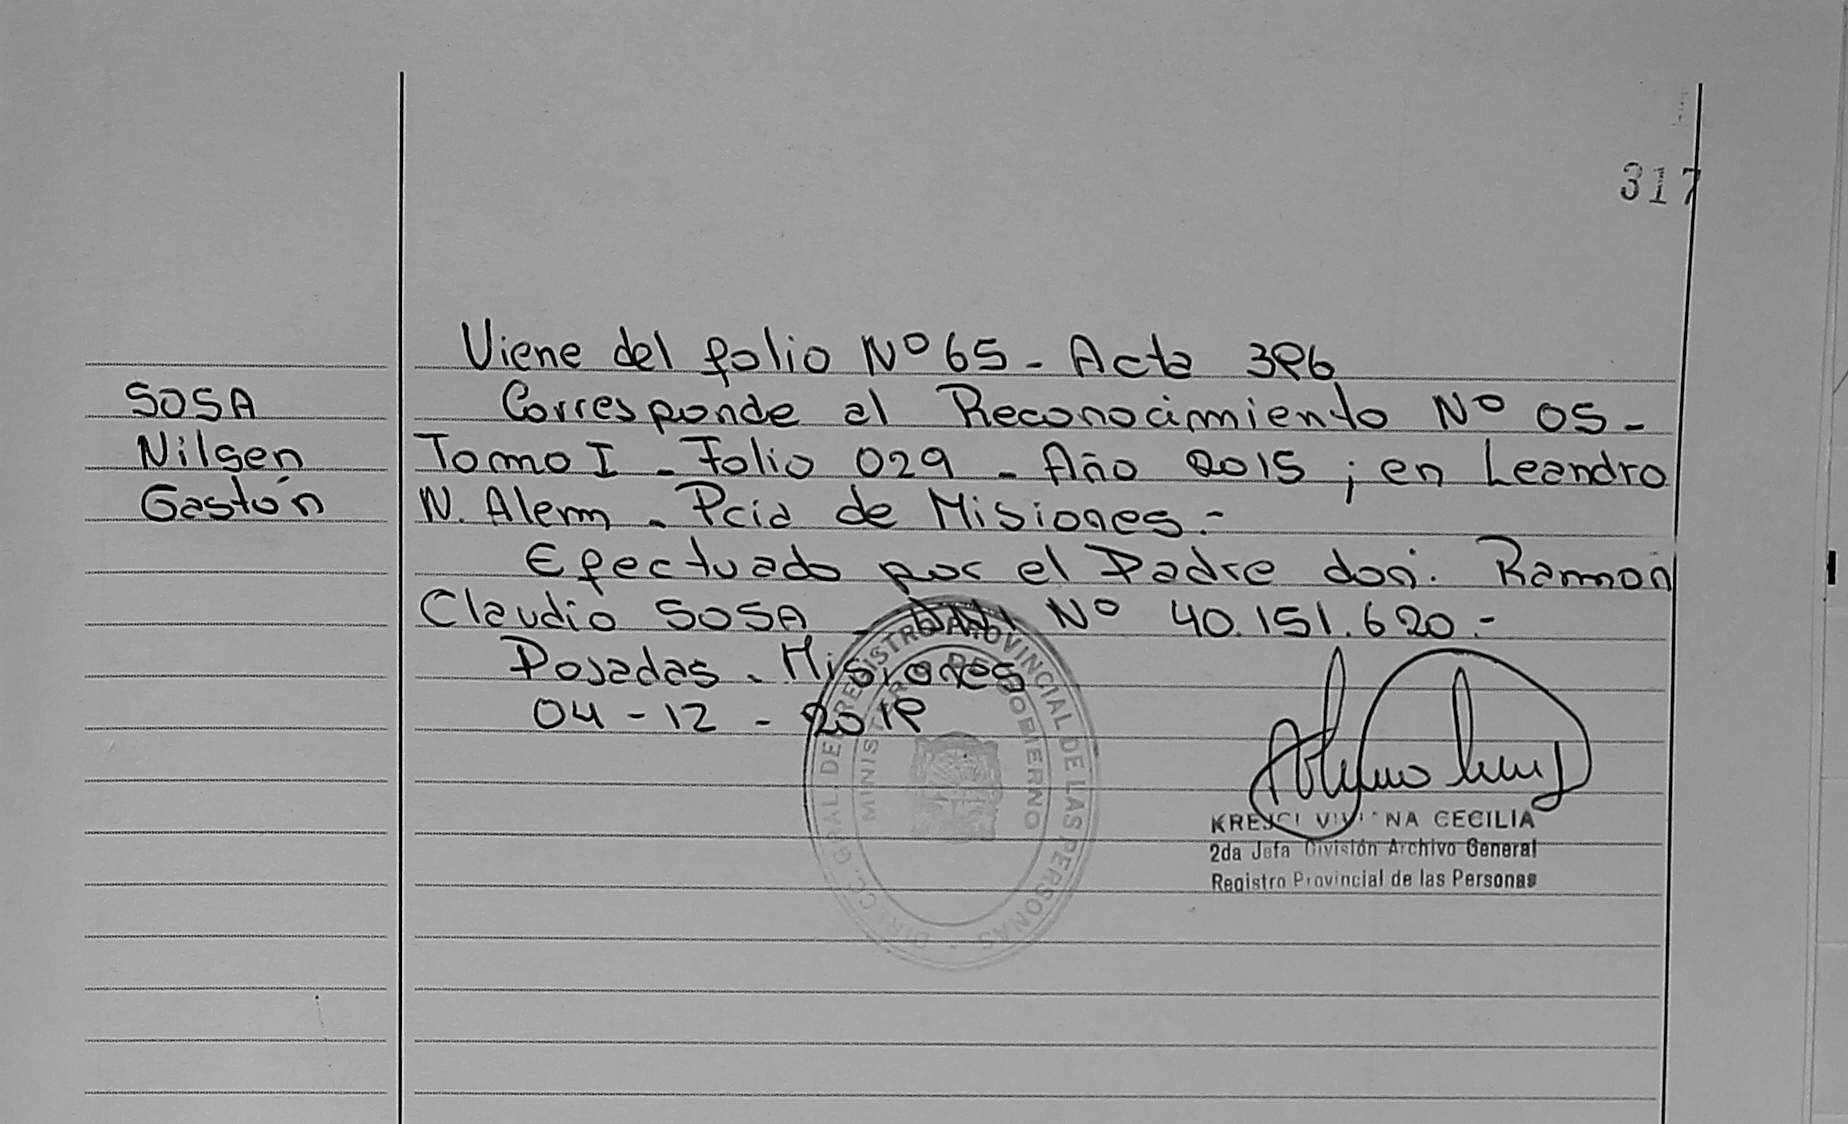 317
Viene del folio Nº 65 - Acta 386
SOSA
Nilsen
Gastón
Corresponde al Reconocimiento Nº 05 -
Tomo I - Folio 029 - Año 2015 ; en Leandro
N. Alem - Pcia de Misiones.-
Efectuado por el Padre don: Ramon
Claudio SOSA - DNI Nº 40.151.620.-
Posadas - Misiones
04 - 12 - 2018
DIRECC. GRAL. DEL REGISTRO PROVINCIAL DE LAS PERSONAS
MINISTERIO DE GOBIERNO
KREJCI VIVIANA CECILIA
2da Jefa División Archivo General
Registro Provincial de las Personas